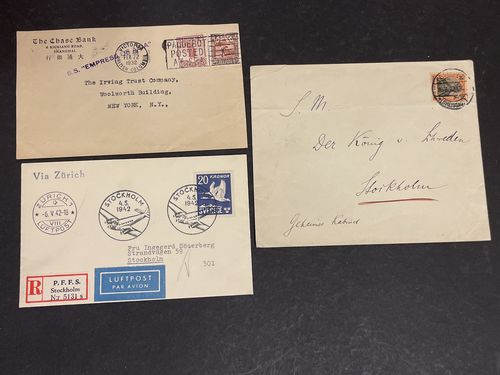 The Chase Bank
6 KIUKIANG ROAD,
SHANGHAI
行銀通大
S.S. "EMPRESS
VICTORIA
FEB 22
1932
BRITISH COLUMBIA
PAQUEBOT
POSTED
AT SEA
The Irving Trust Company,
Woolworth Building,
NEW YORK, N.Y.,
Via Zürich
ZÜRICH 1
9
-6.V.42-18
VIII
(LUFTPOST)
STOCKHOLM
4.5.
1942
STOCKHOLM
4.5.
1942
20 KRONOR
SVERIGE
Fru Ingegerd Söderberg
Strandvägen 59
Stockholm
301
R
P. F. F. S.
Stockholm
Nr 5131 s
LUFTPOST
PAR AVION
S. M.
Der König v. Schweden
Stockholm
Geheimes Kabinet